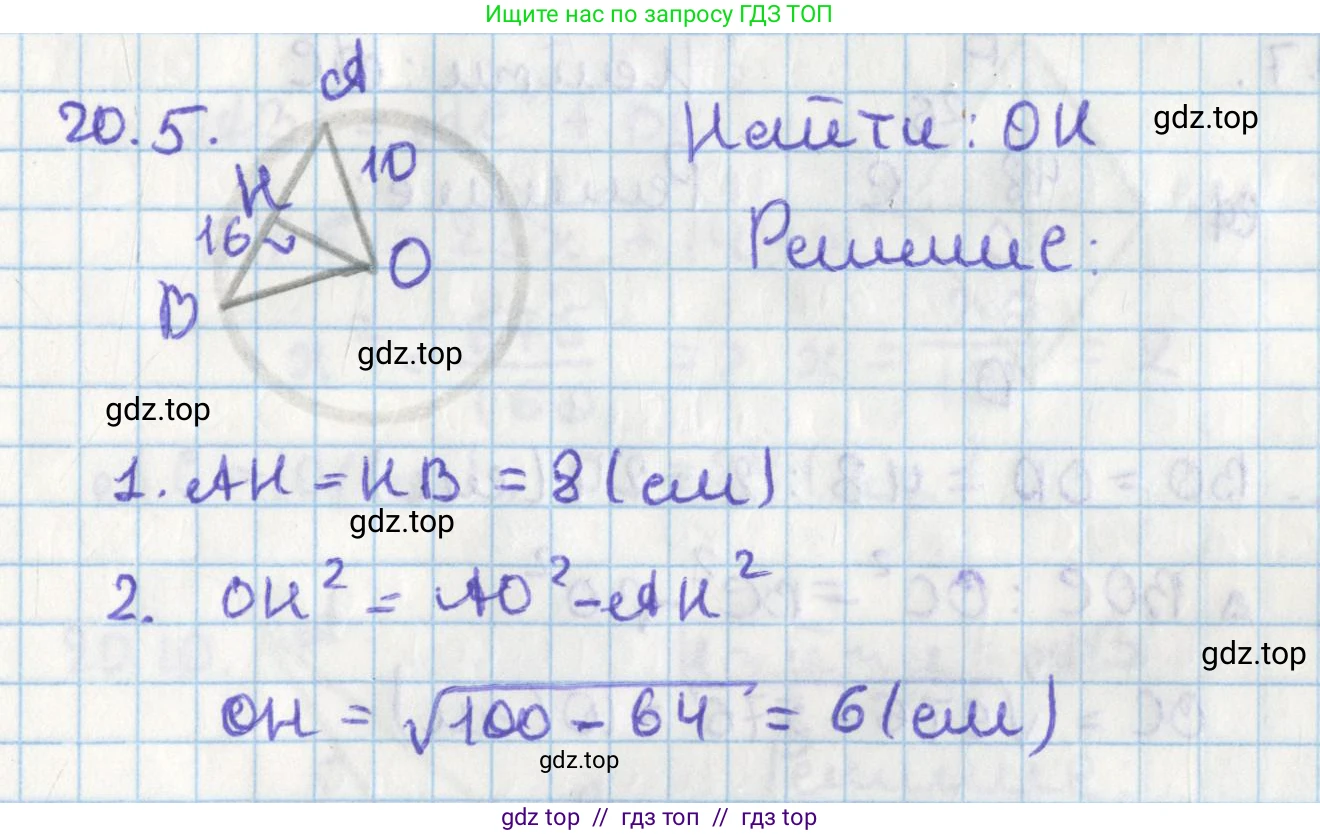 Ищите нас по запросу ГДЗ ТОП
20.5.
A
10
H
16
O
B
Найти: OH
gdz.top
Решение:
gdz.top
gdz.top
1. AH = HB = 8 (см)
gdz.top
2. OH² = AO² - AH²
gdz.top
OH = √100 - 64 = 6 (см)
gdz.top
gdz.top // гдз топ // гдз топ